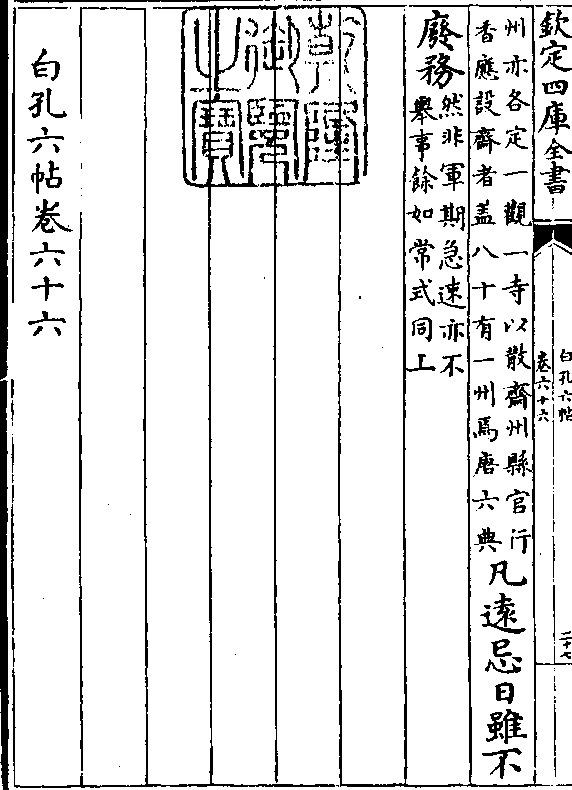 欽定四庫全書
白孔六帖
卷六十六
二十七
州亦各定一觀一寺以散齋州縣官行
香應設齋者盖八十有一州焉唐六典
凡遠忌日雖不
廢務
然非軍期急速亦不
舉事餘如常式同上
乾隆
御覽
之寶
白孔六帖卷六十六